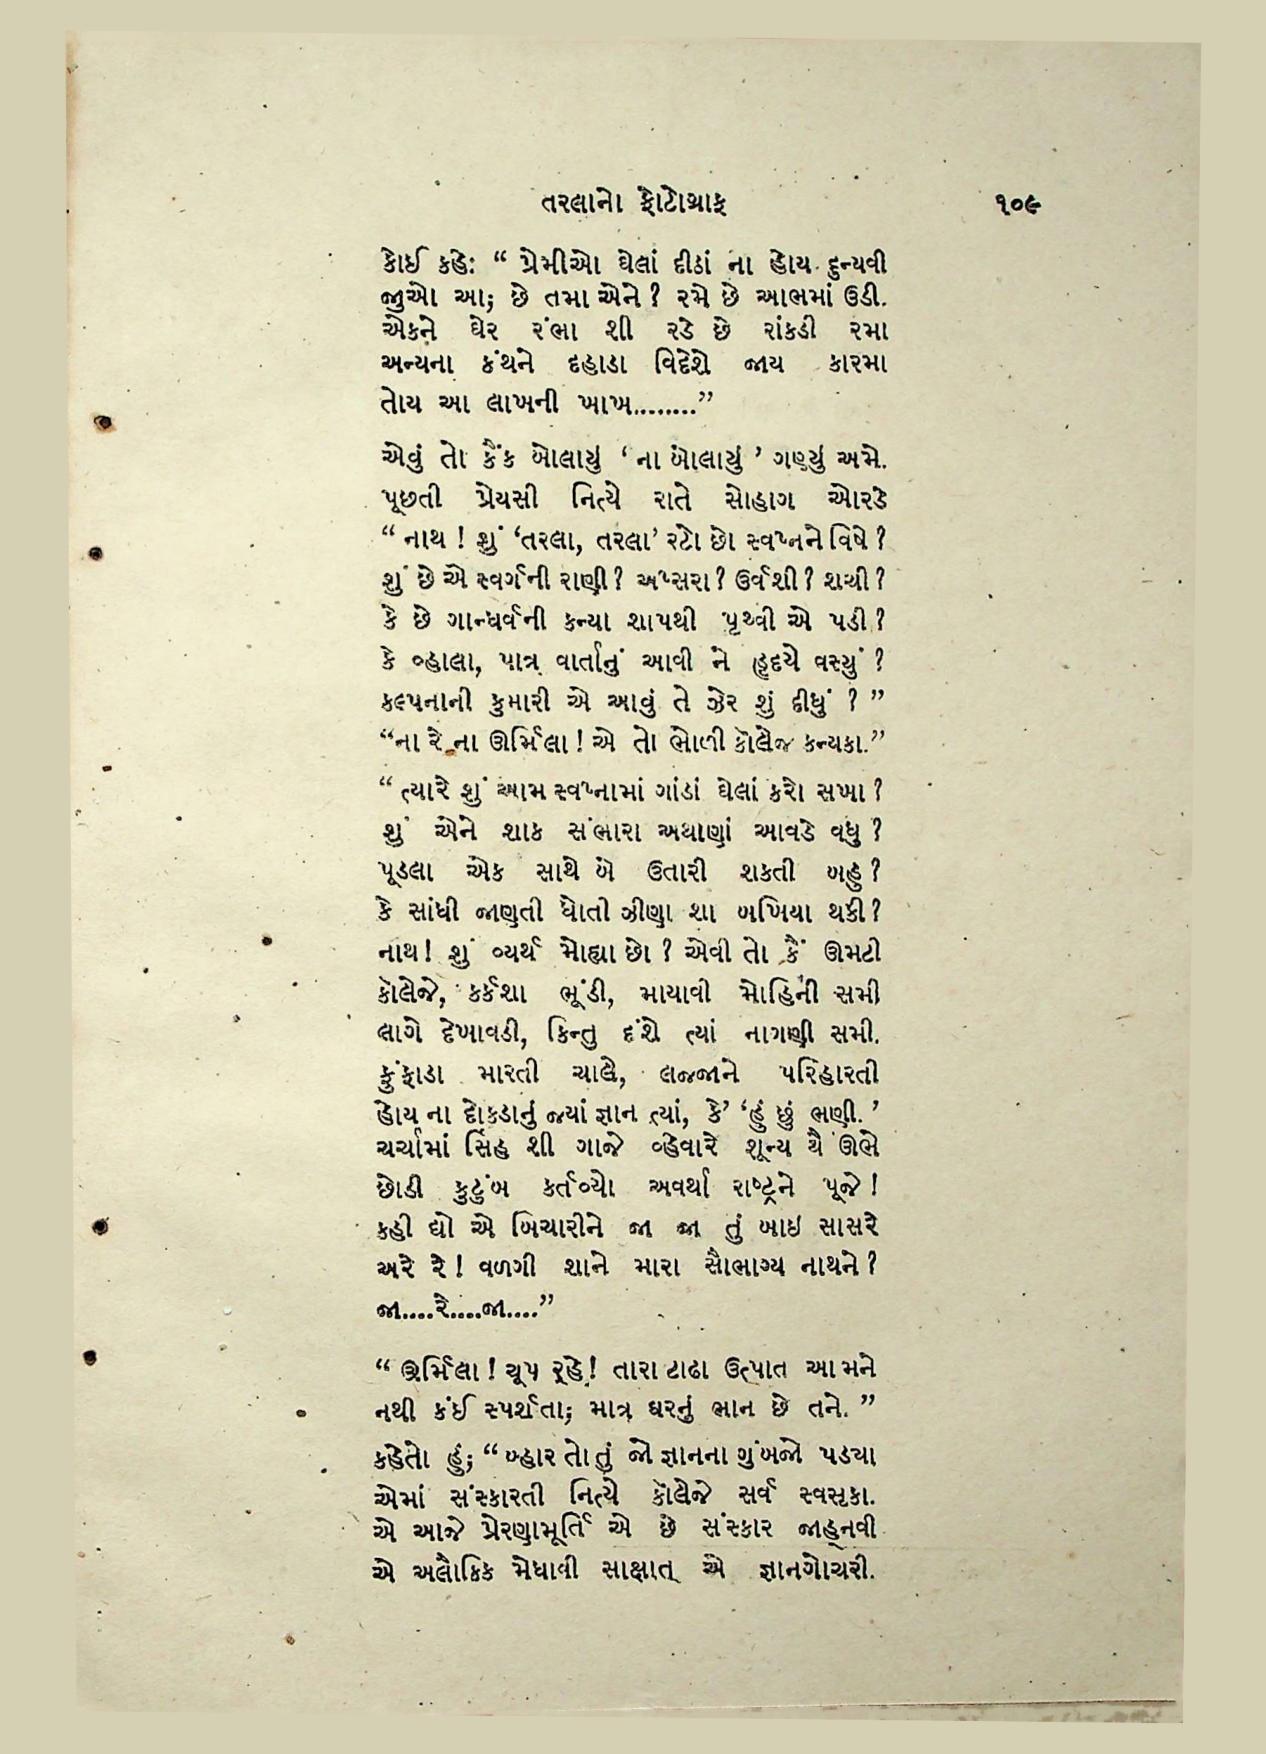 તરલાનો ફોટોગ્રાફ ૧૦૯
કોઈ કહેઃ “ પ્રેમીઓ ઘેલાં દીઠાં ના હોય દુન્યવી
જુઓ આ; છે તમા એને ? રમે છે આભમાં ઉડી.
એકને ઘેર રંભા શી રડે છે રાંકડી રમા
અન્યના કંથને દહાડા વિદેશે જાય કારમા
તોય આ લાખની ખાખ........”
એવું તો કૈંક બોલાયું ‘ ના બોલાયું ’ ગણ્યું અમે.
પૂછતી પ્રેયસી નિત્યે રાતે સોહાગ ઓરડે
“ નાથ ! શું ‘તરલા, તરલા’ રટો છો સ્વપ્નને વિષે ?
શું છે એ સ્વર્ગની રાણી ? અપ્સરા ? ઉર્વશી ? શચી ?
કે છે ગાન્ધર્વની કન્યા શાપથી પૃથ્વી એ પડી ?
કે વ્હાલા, પાત્ર વાર્તાનું આવી ને હૃદયે વસ્યું ?
કલ્પનાની કુમારી એ આવું તે ઝેર શું દીધું ? ”
“ના રે ના ઊર્મિલા ! એ તો ભોળી કૉલેજ કન્યકા.”
“ ત્યારે શું આમ સ્વપ્નામાં ગાંડાં ઘેલાં કરો સખા ?
શું એને શાક સંભારા અથાણાં આવડે વધુ ?
પૂડલા એક સાથે બે ઉતારી શકતી બહુ ?
કે સાંધી જાણતી ધોતી ઝીણા શા બખિયા થકી ?
નાથ ! શું વ્યર્થ મોહ્યા છો ? એવી તો કૈં ઊમટી
કૉલેજે, કર્કશા ભૂંડી, માયાવી મોહિની સમી
લાગે દેખાવડી, કિન્તુ દંશે ત્યાં નાગણી સમી.
ફુંફાડા મારતી ચાલે, લજ્જાને પરિહારતી
હોય ના દોકડાનું જ્યાં જ્ઞાન ત્યાં, કે’ ‘હું છું ભણી. ’
ચર્ચામાં સિંહ શી ગાજે વ્હેવારે શૂન્ય થૈ ઊભે
છોડી કુટુંબ કર્તવ્યો અવર્થા રાષ્ટ્રને પૂજે !
કહી દ્યો એ બિચારીને જા જા તું બાઇ સાસરે
અરે રે ! વળગી શાને મારા સૌભાગ્ય નાથને ?
જા....રે....જા....”
“ ઊર્મિલા ! ચૂપ રહે ! તારા ટાઢા ઉત્પાત આ મને
નથી કંઈ સ્પર્શતા; માત્ર ઘરનું ભાન છે તને. ”
કહેતો હું; “ બ્હાર તો તું જો જ્ઞાનના ગુંબજો પડ્યા
એમાં સંસ્કારતી નિત્યે કૉલેજે સર્વ સ્વસૃકા.
એ આજે પ્રેરણામૂર્તિ એ છે સંસ્કાર જાહ્નવી
એ અલૌકિક મેધાવી સાક્ષાત્ એ જ્ઞાનગોચરી.